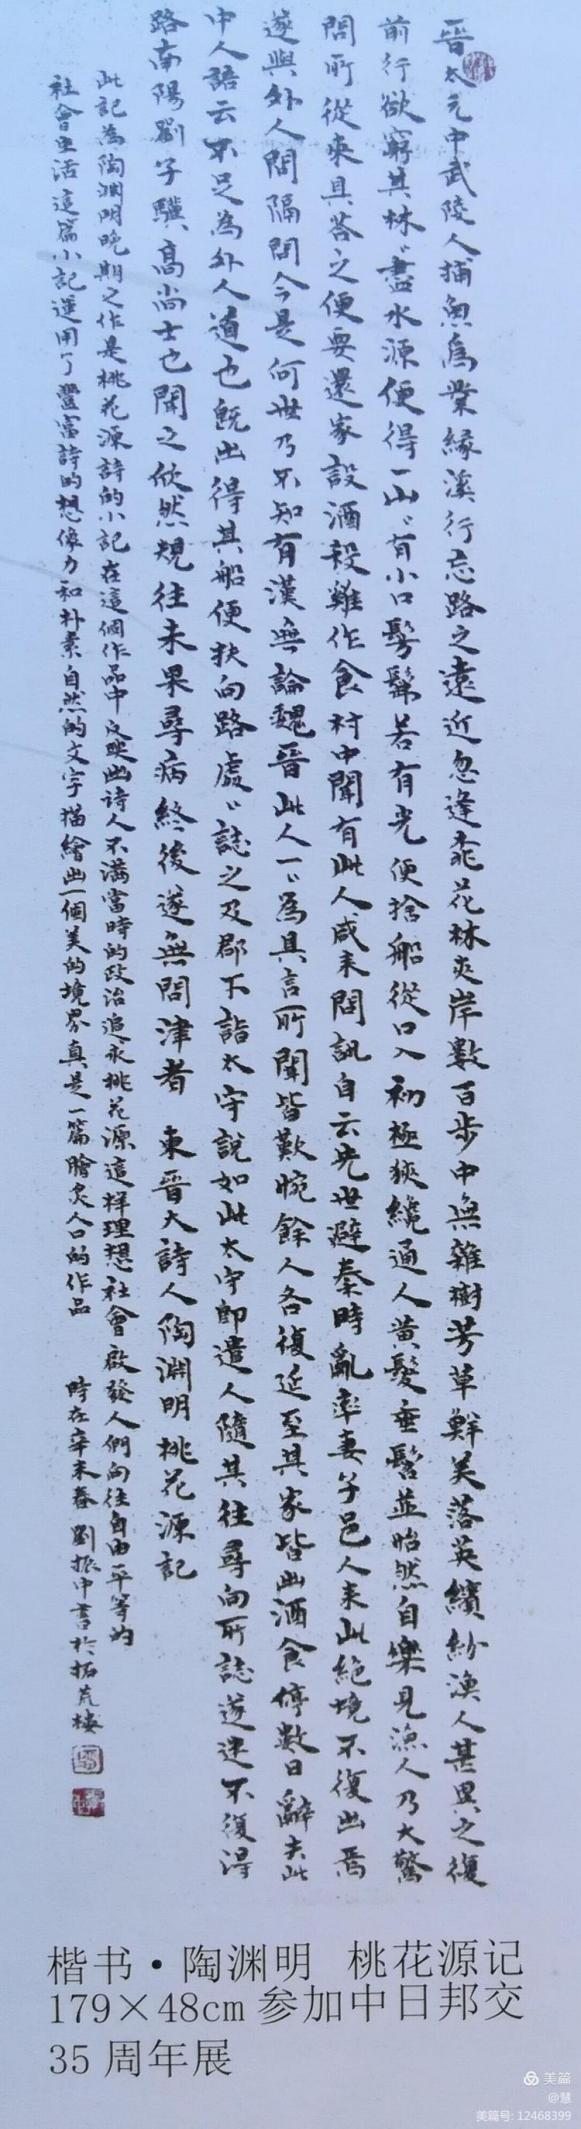 晉太元中武陵人捕魚為業緣溪行忘路之遠近忽逢桃花林夾岸數百步中無雜樹芳草鮮美落英繽紛漁人甚異之復
前行欲窮其林〻盡水源便得一山〻有小口髣髴若有光便捨船從口入初極狹纔通人黃髮垂髫並怡然自樂見漁人乃大驚
問所從來具答之便要還家設酒殺雞作食村中聞有此人咸来問訊自云先世避秦時亂率妻子邑人来此絕境不復出焉
遂與外人間隔問今是何世乃不知有漢無論魏晉此人一〻為具言所聞皆歎惋餘人各復延至其家皆出酒食停數日辭去此
中人語云不足為外人道也既出得其船便扶向路處〻誌之及郡下詣太守說如此太守即遣人隨其往尋向所誌遂迷不復得
路南陽劉子驥高尚士也聞之欣然規往未果尋病終後遂無問津者 東晉大詩人陶淵明桃花源記
此記為陶淵明晚期之作是桃花源詩的小記在這個作品中反映出诗人不滿當時的政治追求桃花源這样理想社會啟發人們向往自由平等的
社會生活這篇小記運用了豐富詩的想像力和朴素自然的文字描繪出一個美的境界真是一篇膾炙人口的作品 時在辛未春 劉振中書於拓荒樓
楷书·陶渊明 桃花源记
179×48cm 参加中日邦交
35 周年展
美篇
@慧
美篇号: 12468399